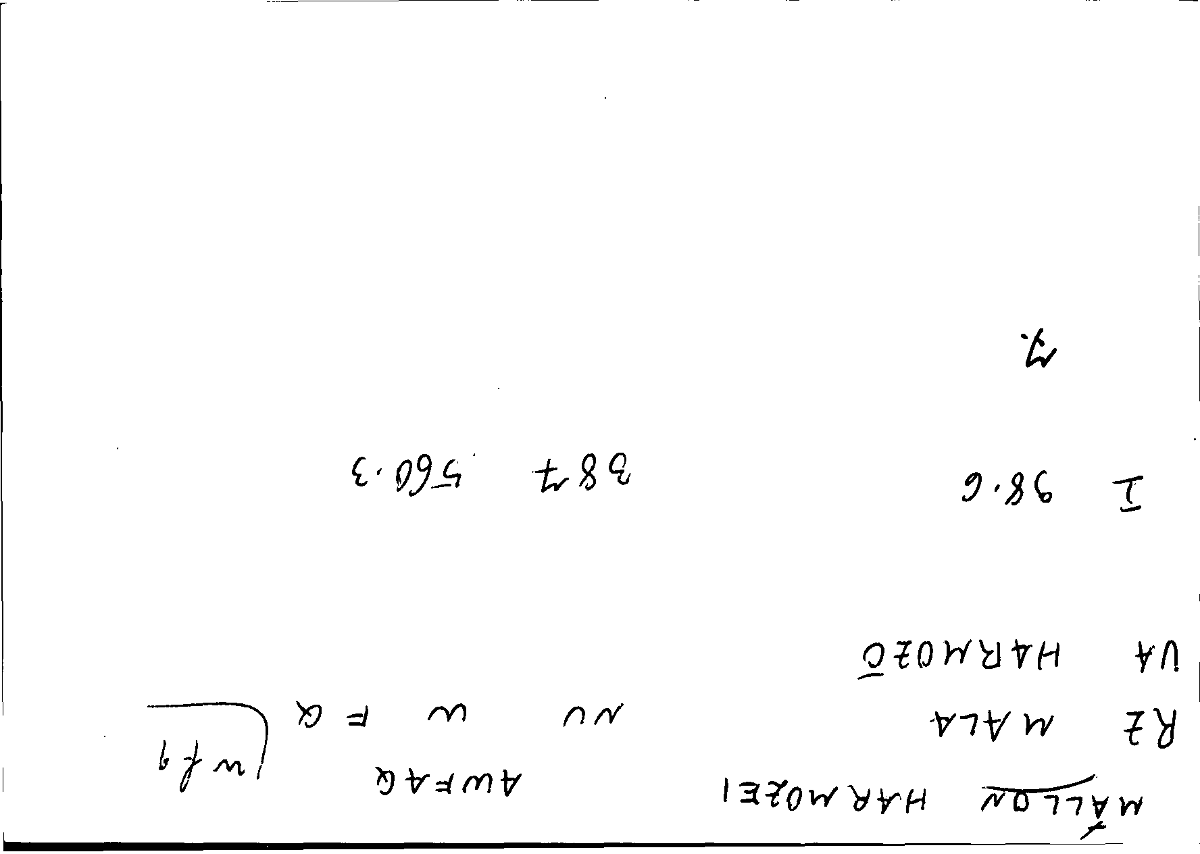 MÁLLON HARMOZEI AWFAQ √wfq
RZ MALA NU W F Q
UA HARMOZŌ
I 98.6 387 560.3
7.